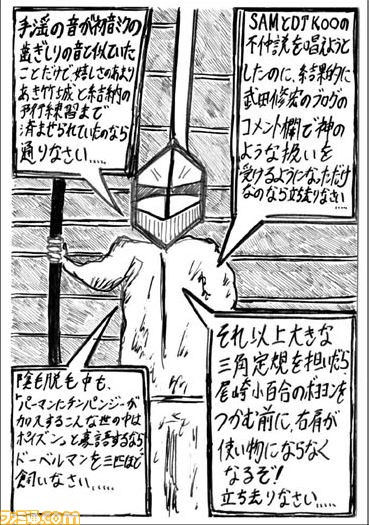 SAMとDJ KOOの
不仲説を唱えよう
としたのに、結果的に
武田修宏のブログの
コメント欄で神の
ような扱いを
受けるようになっただけ
なのなら立ち去りなさい.....
手淫の音が初音ミクの
歯ぎしりの音と似ていた
ことだけで嬉しさのあまり
あき竹城と結納の
予行練習まで
済ませられていたのなら
通りなさい.....
それ以上大きな
三角定規を担いだら
尾崎小百合のポヨンを
つかむ前に、右肩が
使い物にならなく
なるぞ!
立ち去りなさい.....
陰毛脱毛中も、
「パーマンにチンパンジーが
加入するこんな世の中は
ポイズン」と豪語するなら
ドーベルマンを三匹ほど
飼いなさい.....
ファミ通.com